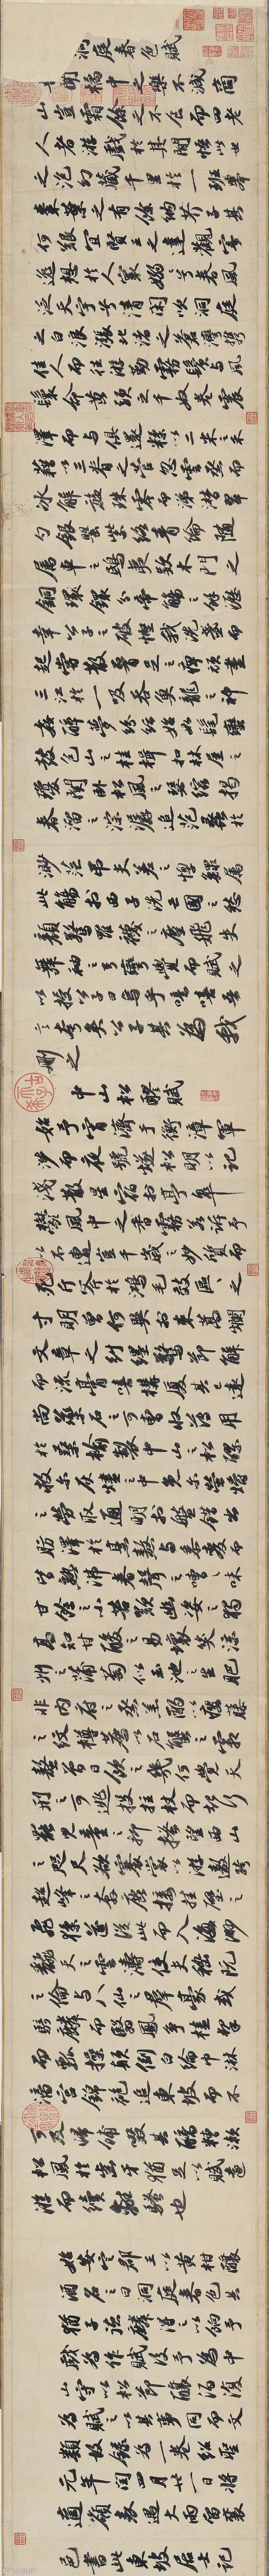 洞庭春色賦
吾聞橘中之樂不減商
山豈霜餘之不食而四老
人者游戲於其間悟此世
之泡幻藏千里於一班舉
棗葉之有餘納芥子其
何艱宜賢王之達觀寄
逸想於人寰嫋嫋兮春風
泛天宇兮清閑吹洞庭
之白浪漲北渚之蒼灣携
佳人而往游勤霧鬢與風
鬟命黃頭之千奴卷震
澤而與俱還糅以二米之禾
藉以三脊之菅忽雲烝而
冰解旋珠零而涕潸翠
勺銀罌紫絡青綸隨
屬車之鴟夷款木門之
銅鐶分帝觴之餘瀝
幸公子之破慳我洗盞而
起嘗散腰足之痹頑盡
三江於一吸吞魚龍之神
姦醉夢紛紜始如髦蠻
鼓包山之桂楫扣林屋之
瓊關卧松風之瑟縮揭
春溜之淙潺追范蠡於
渺茫弔夫差之惸鰥屬
此觴於西子洗亡國之愁
顏驚羅襪之塵飛失
舞袖之弓彎覺而賦之
以授公子曰烏乎噫嘻吾
言夸矣公子其為我
刪之
中山松醪賦
始予宵濟于衡漳軍
涉而夜號燧松明以記
淺散星宿於亭皋
鬱風中之香霧若訴予
以不遭豈千歲之妙質而
死斤斧於鴻毛效區區之
寸明曾何異於束蒿爛
文章之糾纆驚節解
而流膏嘻構廈其已遠
尚藥石之可曹收薄用
於桑榆製中山之松醪
救爾灰燼之中免爾螢爝
之勞取通明於盤錯出
肪澤於烹熬與黍麥而
皆熟沸舂聲之嘈嘈味
甘餘之小苦歎幽姿之獨
高知甘酸之易壞笑涼
州之蒲萄似玉池之生肥
非內府之烝羔酌以癭藤
之紋樽薦以石蟹之霜
螯曾日飲之幾何覺天
刑之可逃投拄杖而起行
罷兒童之抑搔望西山
之咫尺欲褰裳以游遨跨
超峰之奔鹿接挂壁之
飛猱遂從此而入海渺
翻天之雲濤使夫嵇阮
之倫與八仙之群豪或
騎麟而翳鳳爭榼挈
而瓢操顛倒白綸巾淋
漓宮錦袍追東坡而不
可及歸餔歠其醨糟漱
松風於齒牙猶足以賦遠
游而續離騷也
始安定郡王以黃柑釀
酒名之曰洞庭春色其
猶子德麟得之以餉予
戲為作賦後予為中
山守以松節釀酒復
為賦之以其事同而文
類故錄為一卷紹聖
元年閏四月廿一日將
適嶺表遇大雨留襄
邑書此東坡居士記